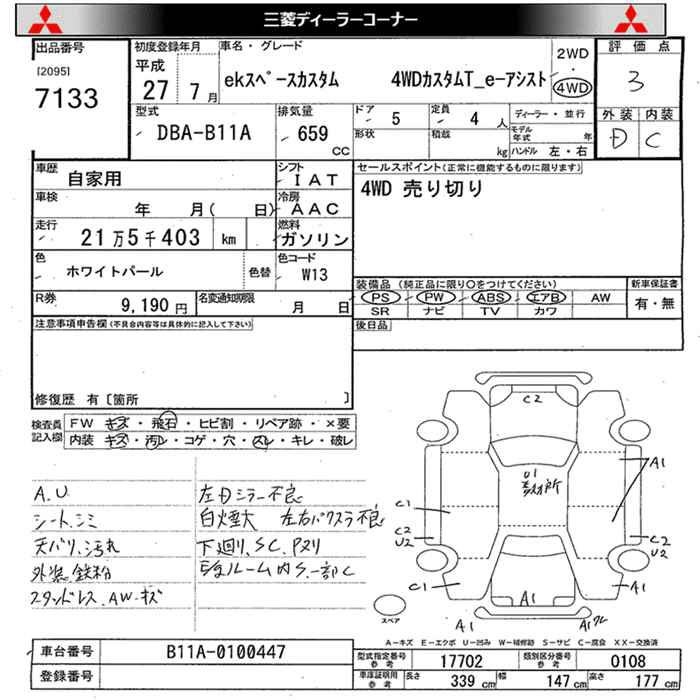 三菱ディーラーコーナー
出品番号
[2095]
7133
初度登録年月
平成
27 7月
車名・グレード
ekスペースカスタム 4WDカスタムT_e-アシスト
2WD
・
4WD
評価点
3
外装 内装
D C
型式
DBA-B11A
排気量
659
CC
ドア 5
形状
定員 4 人
積載 kg
ディーラー・並行
モデル年式 年
ハンドル 左・右
車歴
自家用
シフト
IAT
車検
年 月( 日)
冷房
AAC
走行
21万5千403 km
燃料
ガソリン
色
ホワイトパール
色替
色コード
W13
R券
9,190円
名変通知期限
月 日
セールスポイント(正常に機能するものに限ります)
4WD 売り切り
装備品(純正品に限り○をつけてください)
PS PW ABS エアB AW
SR ナビ TV カワ
新車保証書
有・無
後日品
注意事項申告欄(不具合内容等は具体的に記入して下さい)
修復歴 有〔箇所 〕
検査員記入欄
FW キズ・飛石・ヒビ割・リペア跡・×要
内装 キズ・汚レ・コゲ・穴・スレ・キレ・破レ
A.U
シート.シミ
天バリ.汚れ
外装.鉄粉
スタッドレス.AW.キズ
左Dミラー不良
白煙大 左右バックスラ不良
下廻り.SC.Pヌリ
ルーム内S.一部C
C2
U1
A1
C1
C2
U2
C2
U2
C1
A1
A1
A1
A1
スペア
A-キズ E-エクボ U-凹み W-補修跡 S-サビ C-腐食 XX-交換済
車台番号
B11A-0100447
登録番号
型式指定番号
参考
17702
類別区分番号
参考
0108
車庫証明用
参考
長さ 339 cm
幅 147 cm
高さ 177 cm